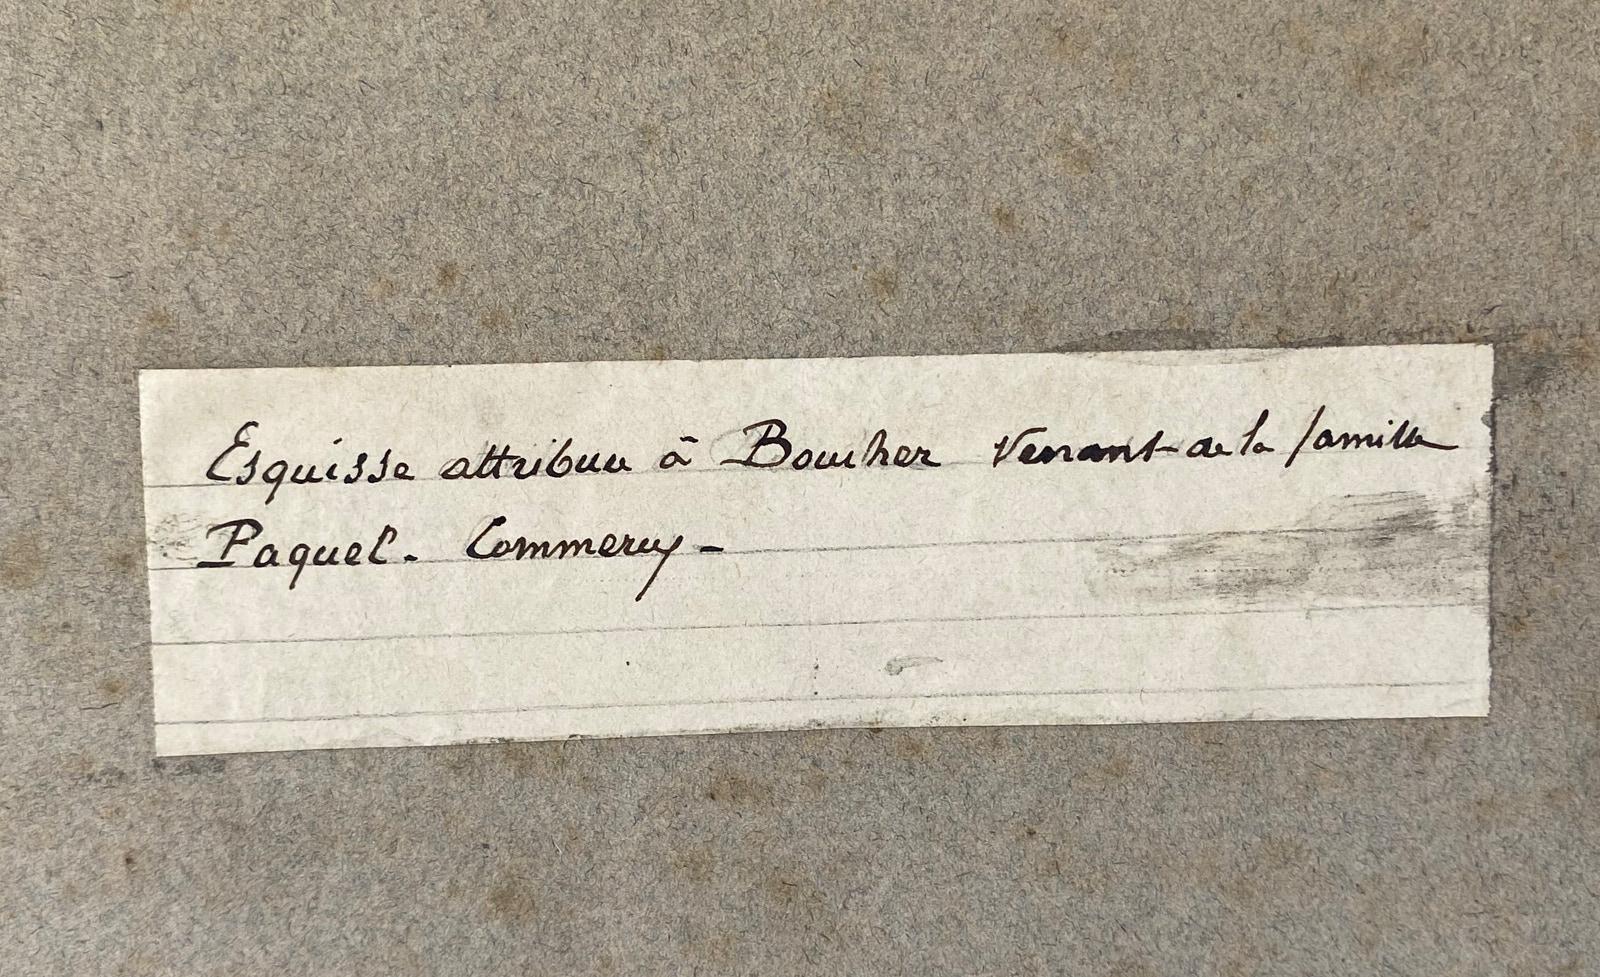 Esquisse attribuée à Boucher venant de la famille
Paquel. Commercy -